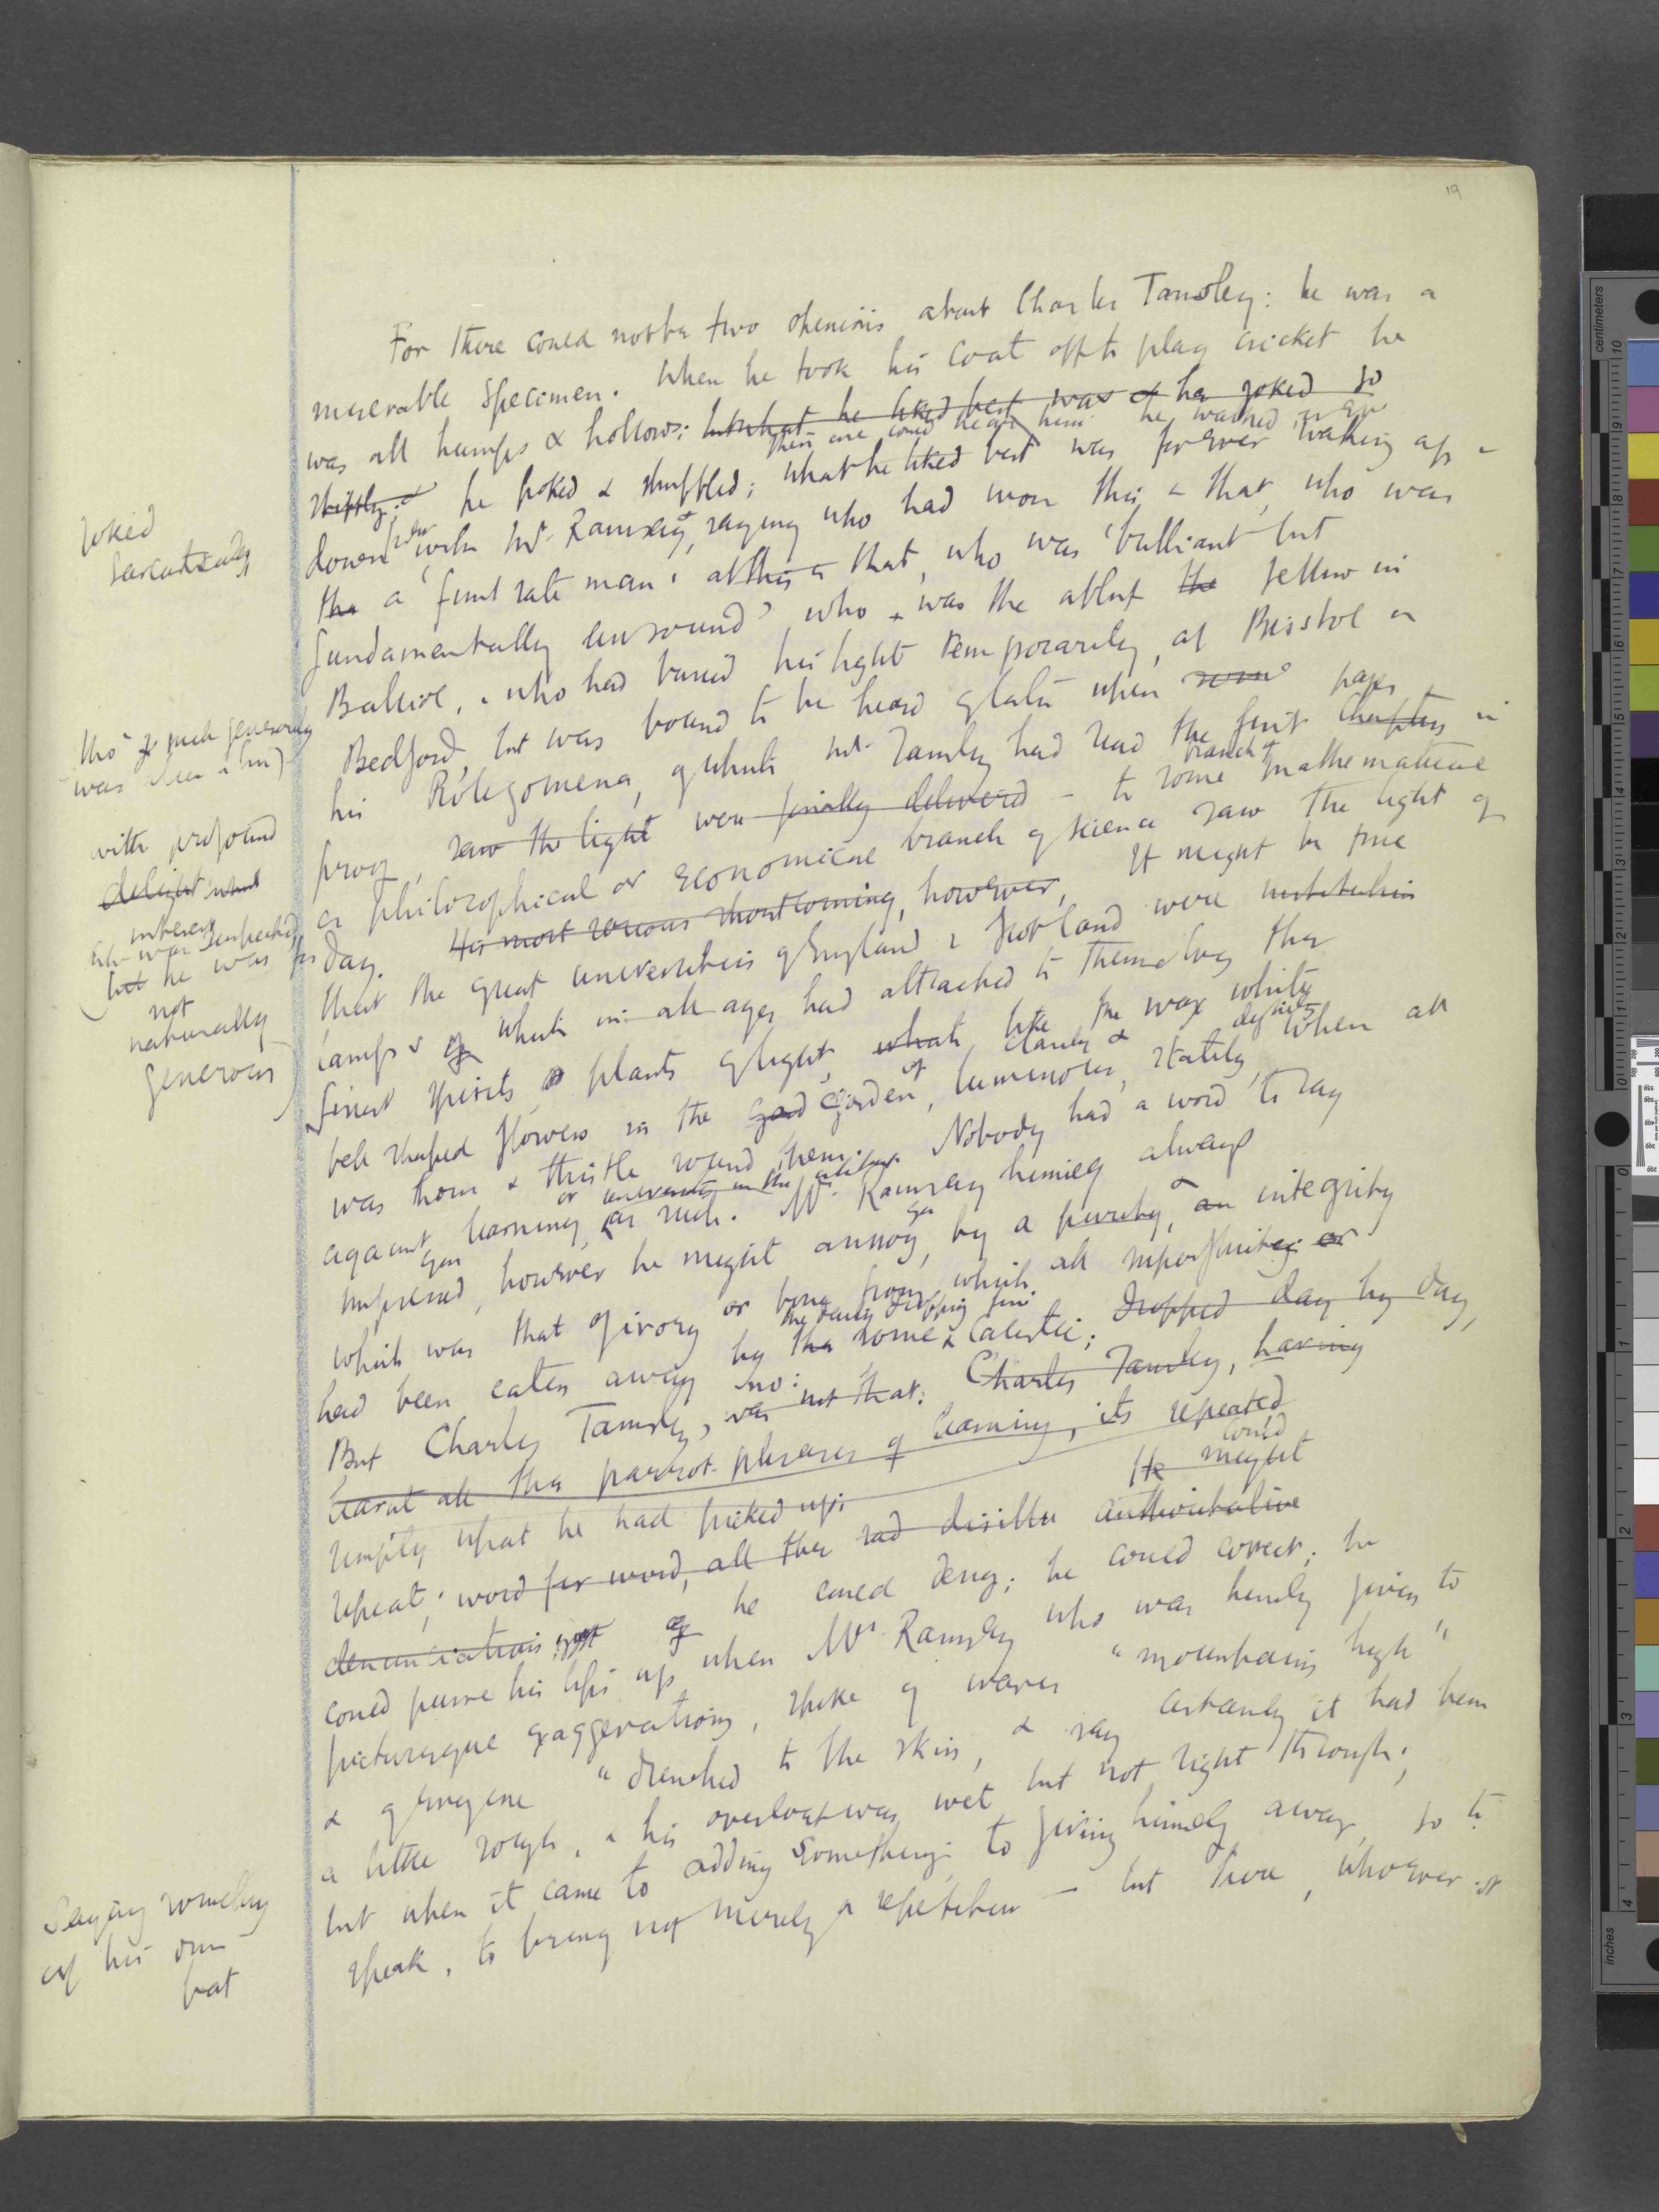 19
For there could not be two opinions about Charles Tansley: he was a
miserable specimen. When he took his coat off to play cricket he
was all humps & hollows; but what he liked best was & he joked so
then one could hear him he washed
he poked & shuffled; what he liked best was for ever walking up &
joked
sarcastically
down with Mr. Ramsay, saying who had won this & that, who was
the a 'first rate man' at this & that, who was 'brilliant but
fundamentally unsound', who was the ablest the fellow in
Balliol, who had buried his light temporarily at Bristol or
Bedford, but was bound to be heard of later when some paper
tho' such generosity
was in him)
his Prolegomena, of which Mr Tansley had read the first chapters in
branch of
proof, saw the light were finally delivered - to some mathematical
with profound
delight
interest
or philosophical or economical branch of science saw the light of
day. His most serious shortcoming, however, It might be true
he was suspected
but he was
not
naturally
generous
that the great universities of England & Scotland were
lamps of which in all ages had attracted to themselves the
finest spirits plants of light, what like the wax white
clarity & definity
bell shaped flowers in the garden, luminous, stately, when all
was thorn & thistle round them. Nobody had a word to say
or university in the
against learning, as such. Mr. Ramsay himself always
impressed, however he might annoy, by a purity, & an integrity
which was that of ivory or bone from which all superfluity or
the daily dropping from
had been eaten away by the some Celestial; Dropped day by day,
But Charles Tansley, no: was not that: Charles Tansley, having
learnt all the parrot phrases of learning, its repeated
simply what he had picked up; He might could
repeat; word for word, all the authoritative
denunciations of he could deny; he could correct; he
could purse his lips up when Mrs. Ramsay who was hardly given to
picturesque exaggerations, spoke of waves "mountains high"
& of anyone "drenched to the skin, & say certainly it had been
a little rough, & his overcoat was wet but not right through;
but when it came to adding something to giving himself away, so to
Saying something
off his own
bat
speak, to being not merely a repetition - but here, whoever it